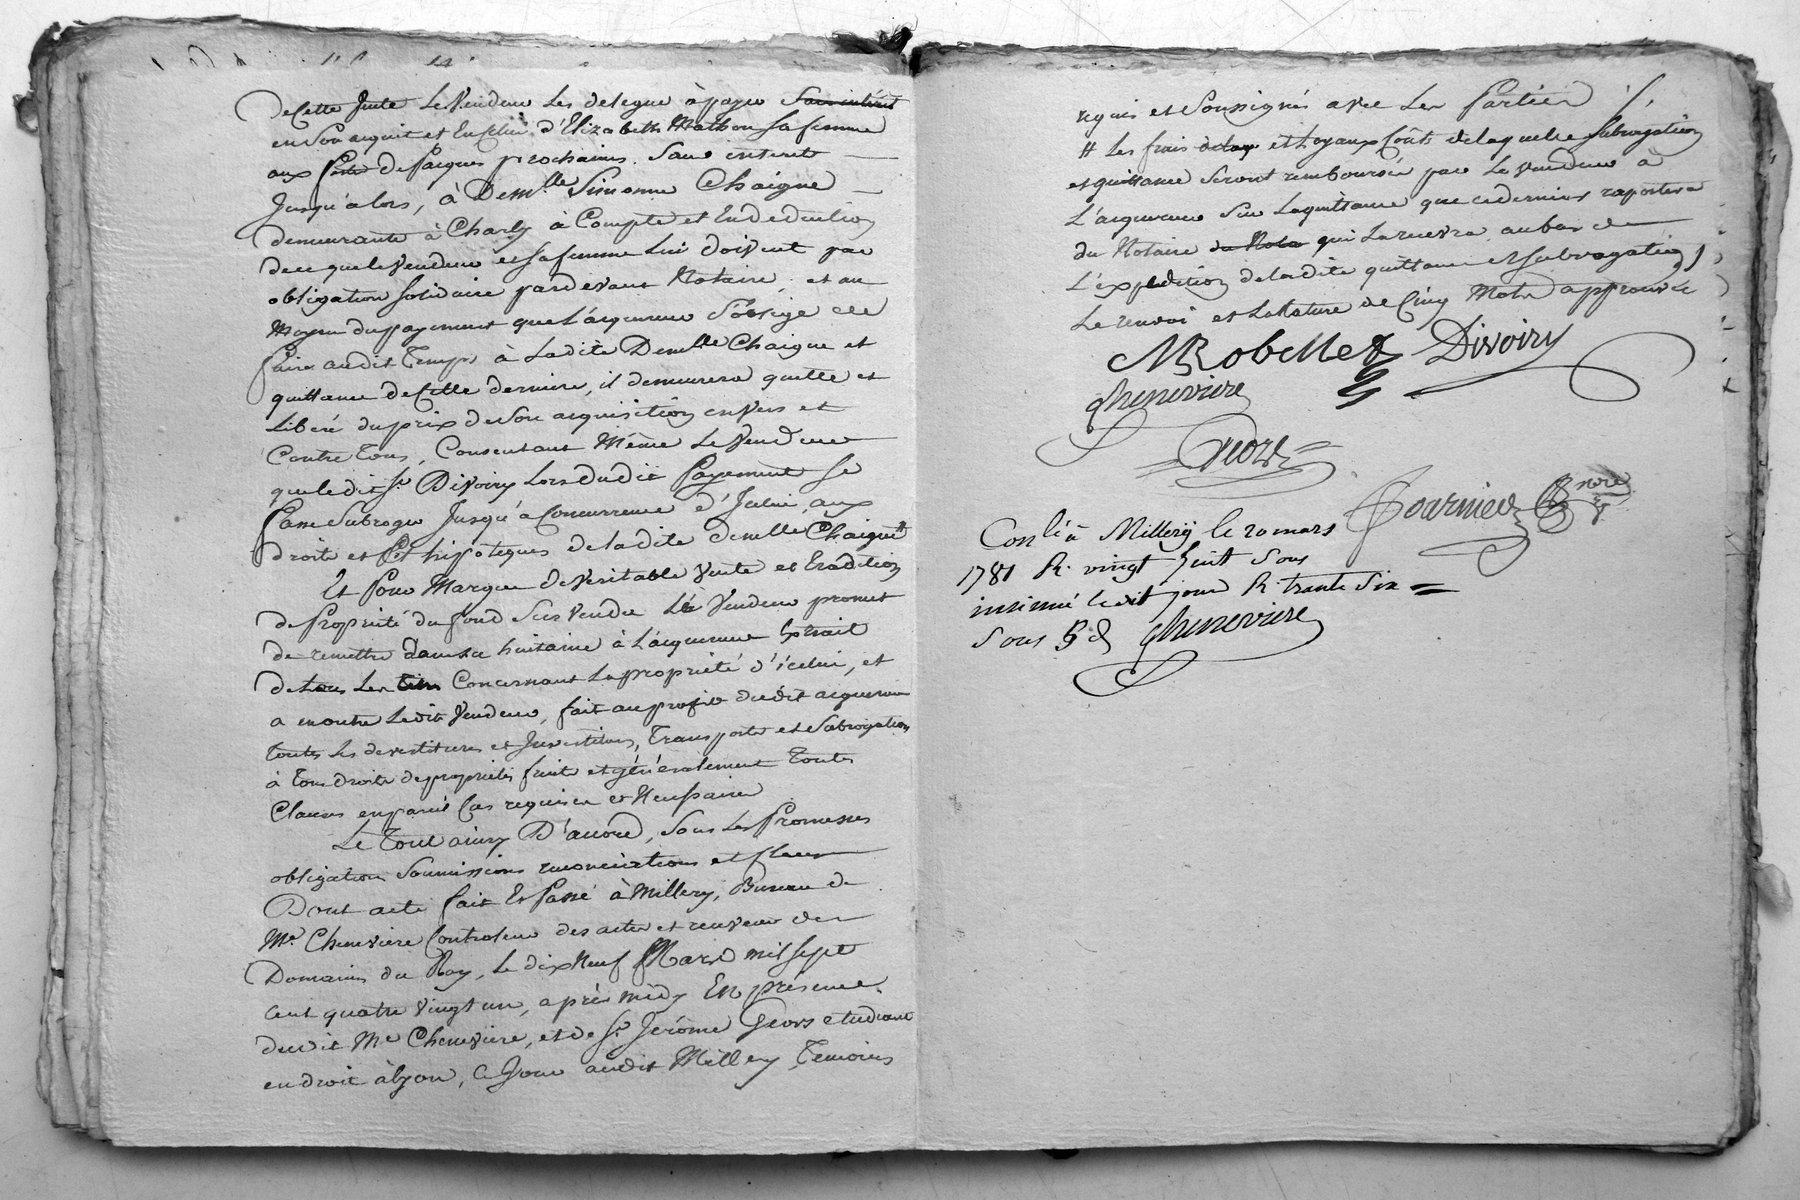 de Cette Juste Le Vendeur Les delegue à payer sans interest
en Son acquit et En Celui d'Elizabeth Mathon Sa femme
aux feste de Paques prochaines. Sans interest
Jusqu'alors, à Demlle Simonne Chaigne
demeurante à Charly à Compte et En deduction
de ce que le vendeur et Sa femme Lui doivent par
obligation Solidaire pardevant Notaire, et au
Moyen du payement que L'acquereur S'oblige de
faire audit Temps à Ladite Demlle Chaigne et
quittance de Cette derniere, il demeurera quitte et
Liberé du prix de Son acquisition envers et
Contre Tous, Consentant Même Le Vendeur
que ledit Sr. Divoiry Lors dudit Payement Se
fasse Subroger Jusqu'a Concurrence d'Icelui, aux
droits et hipoteques de ladite demlle Chaigne #
Et Pour Marque de veritable vente et tradition
de Proprieté du fond Sus vendu Le Vendeur promet
de remettre dans la huitaine à L'acquereur Extrait
de tous Les titres Concernant La proprieté d'icelui, et
a en outre Ledit Vendeur, fait au profit dudit acquereur
toutes Les devestitures et Investitures, Transports et Subrogations
à Tous droits de proprietés fruits et généralement Toutes
Clauses en pareil Cas requises et Necessaires
Le Tout ainsy D'accord, Sous Les Promesses
obligations Soumissions renonciations et Clauses
Dont acte fait Et Passé à Millery, Bureau de
Me. Cheneviere Controleur des actes et receveur des
Domaines du Roy, Le dix Neuf Mars mil Sept
Cent quatre vingt un, après midy En présence
dudit Me Cheneviere, et de Sr. Jerôme Geors etudiant
en droit à Lyon, Ce Jour audit Millery Temoins
requis et Soussignés avec Les Parties /.
# Les frais et Loyaux Coûts de laquelle Subrogation
et quittance Seront remboursés par Le vendeur à
L'acquereur Sur La quittance que ce dernier raportera
du Notaire du Nota qui La recevra au bas de
L'expedition de ladite quittance et Subrogation
Le renvoi et La Rature de Cinq Mots approuvés
MRobelle Divoiry
Chenevière
Geors
Fournier Nore
Conlé à Millery le 20 mars
1781 R. vingt huit Sous
insinué ledit jour R. trante Six
Sous
Chenevière